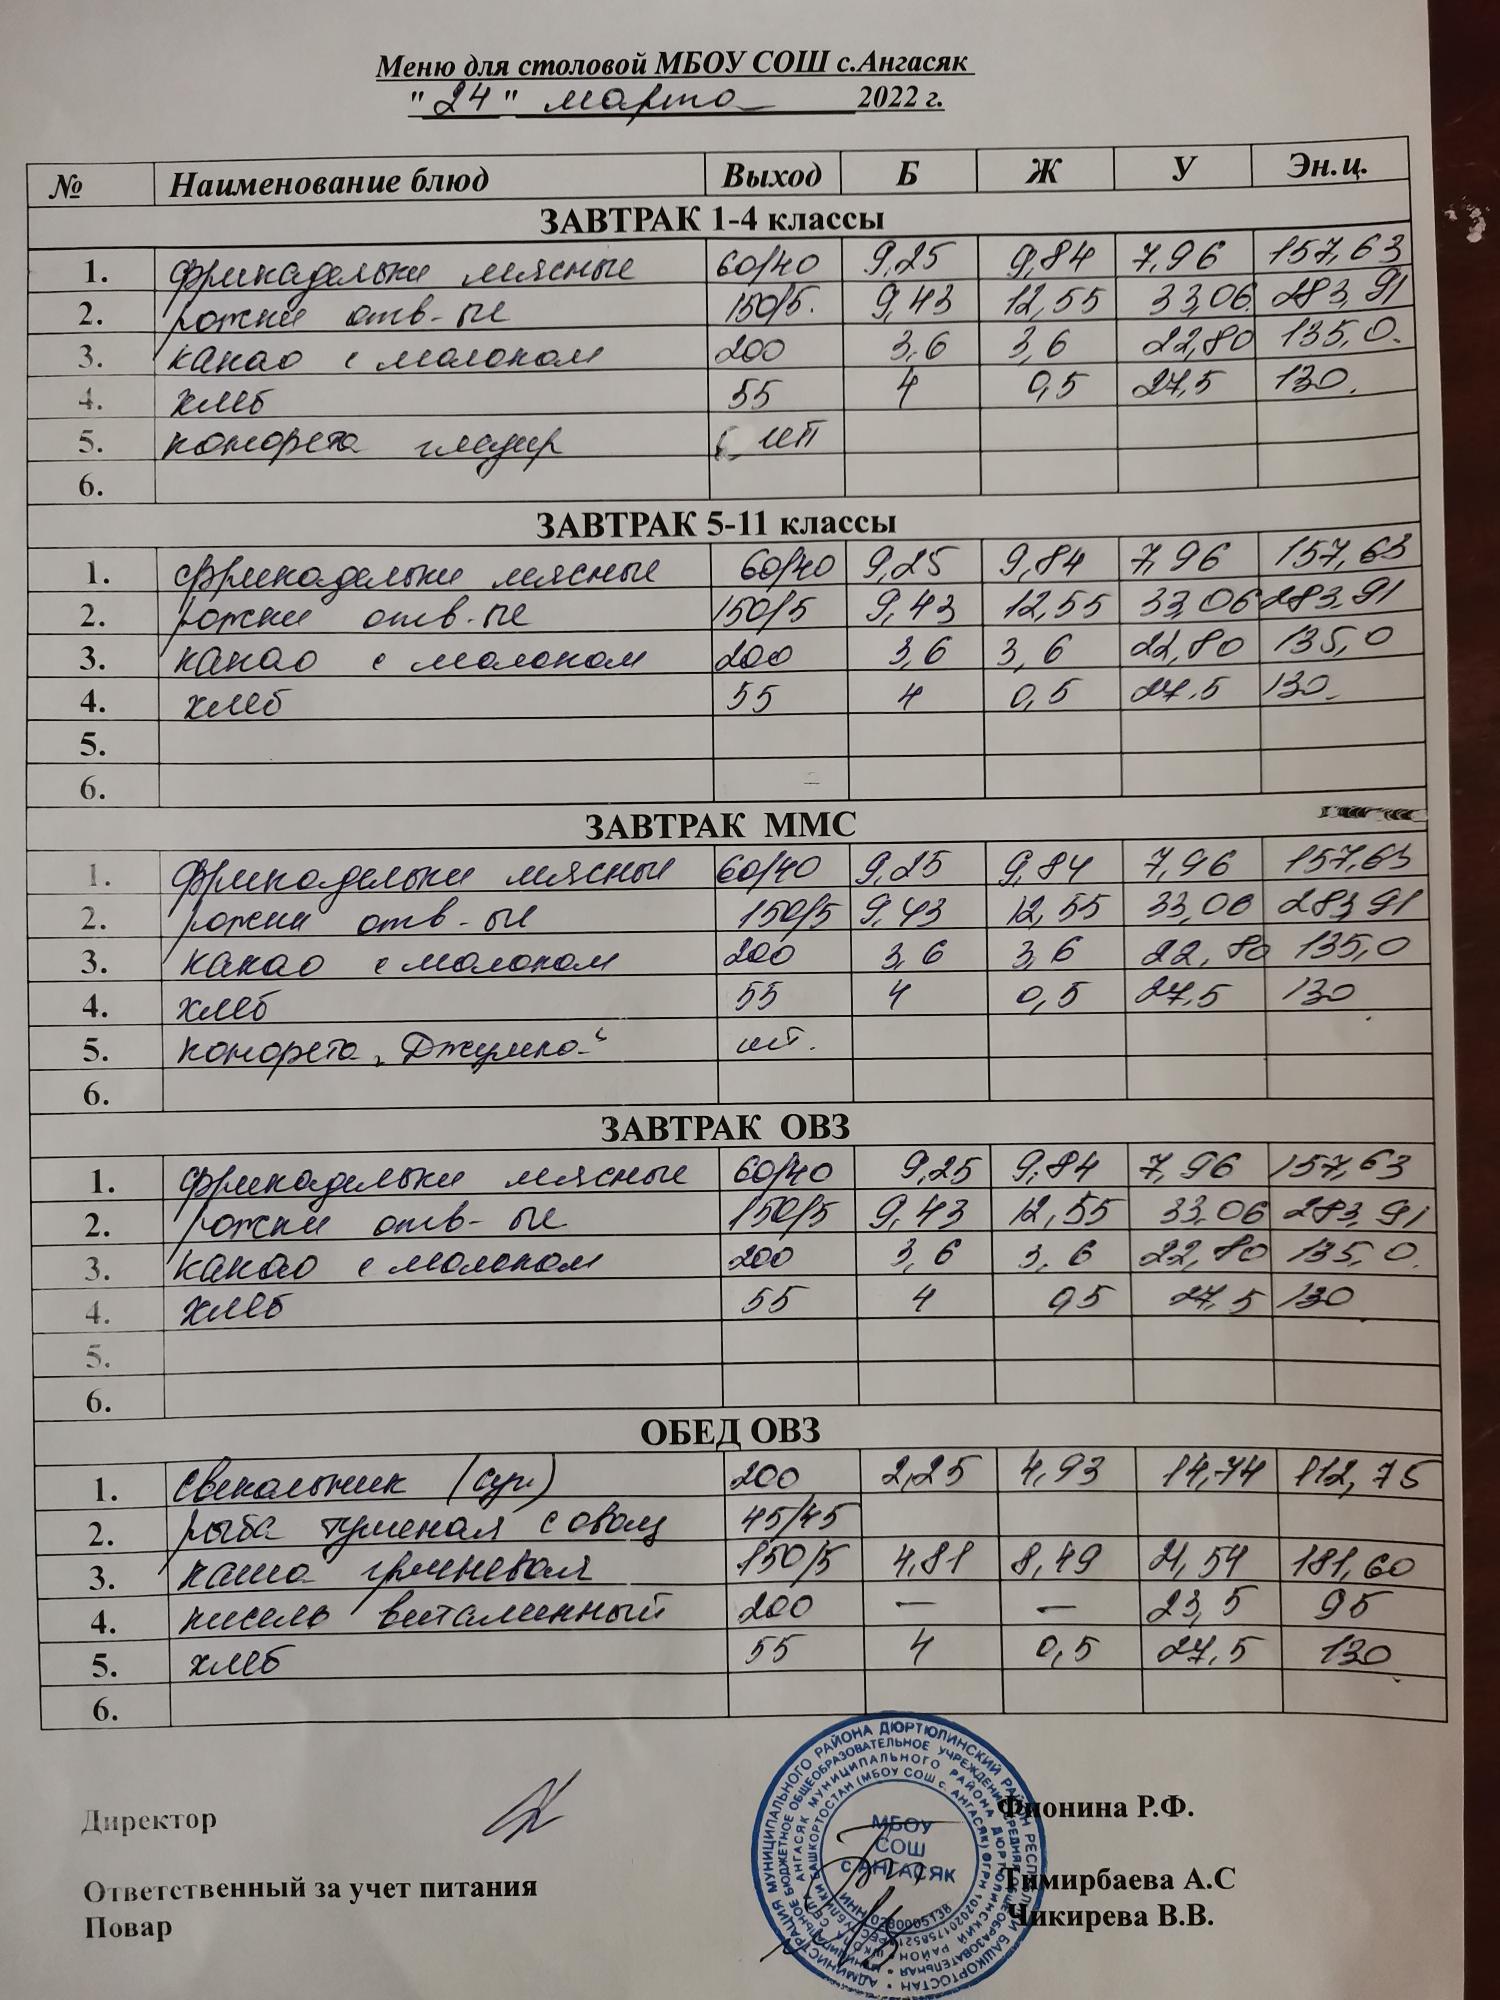 Меню для столовой МБОУ СОШ с.Ангасяк
"24" марта 2022 г.
№ Наименование блюд Выход Б Ж У Эн.ц.
ЗАВТРАК 1-4 классы
1. фрикадельки мясные 60/40 9,25 9,84 7,96 157,63
2. рожки отв-ые 150/5. 9,43 12,55 33,06. 283,91
3. какао с молоком 200 3,6 3,6 22,80 135,0.
4. хлеб 55 4 0,5 27,5 130.
5. конфета глазир шт
6.
ЗАВТРАК 5-11 классы
1. фрикадельки мясные 60/40 9,25 9,84 7,96 157,63
2. рожки отв-ые 150/5 9,43 12,55 33,06 283,91
3. какао с молоком 200 3,6 3,6 22,80 135,0
4. хлеб 55 4 0,5 27.5 130.
5.
6.
ЗАВТРАК ММС
1. фрикадельки мясные 60/40 9,25 9,84 7,96 157,63
2. рожки отв-ые 150/5 9,43 12,55 33,06 283,91
3. какао с молоком 200 3,6 3,6 22,80 135,0
4. хлеб 55 4 0,5 27,5 130
5. конфета „Джумка" шт.
6.
ЗАВТРАК ОВЗ
1. фрикадельки мясные 60/40 9,25 9,84 7,96 157,63
2. рожки отв-ые 150/5 9,43 12,55 33,06 283,91
3. какао с молоком 200 3,6 3,6 22,80 135,0.
4. хлеб 55 4 0,5 27,5 130
5.
6.
ОБЕД ОВЗ
1. свекольник (суп) 200 2,25 4,93 14,74 112,75
2. рыба тушеная с овощ 45/45
3. каша гречневая 150/5 4,81 8,49 21,54 181,60
4. кисель витаминный 200 — — 23,5 95
5. хлеб 55 4 0,5 27,5 130
6.
Директор Фионина Р.Ф.
МБОУ
СОШ
с АНГАСЯК
Ответственный за учет питания Тимирбаева А.С
Повар Чикирева В.В.